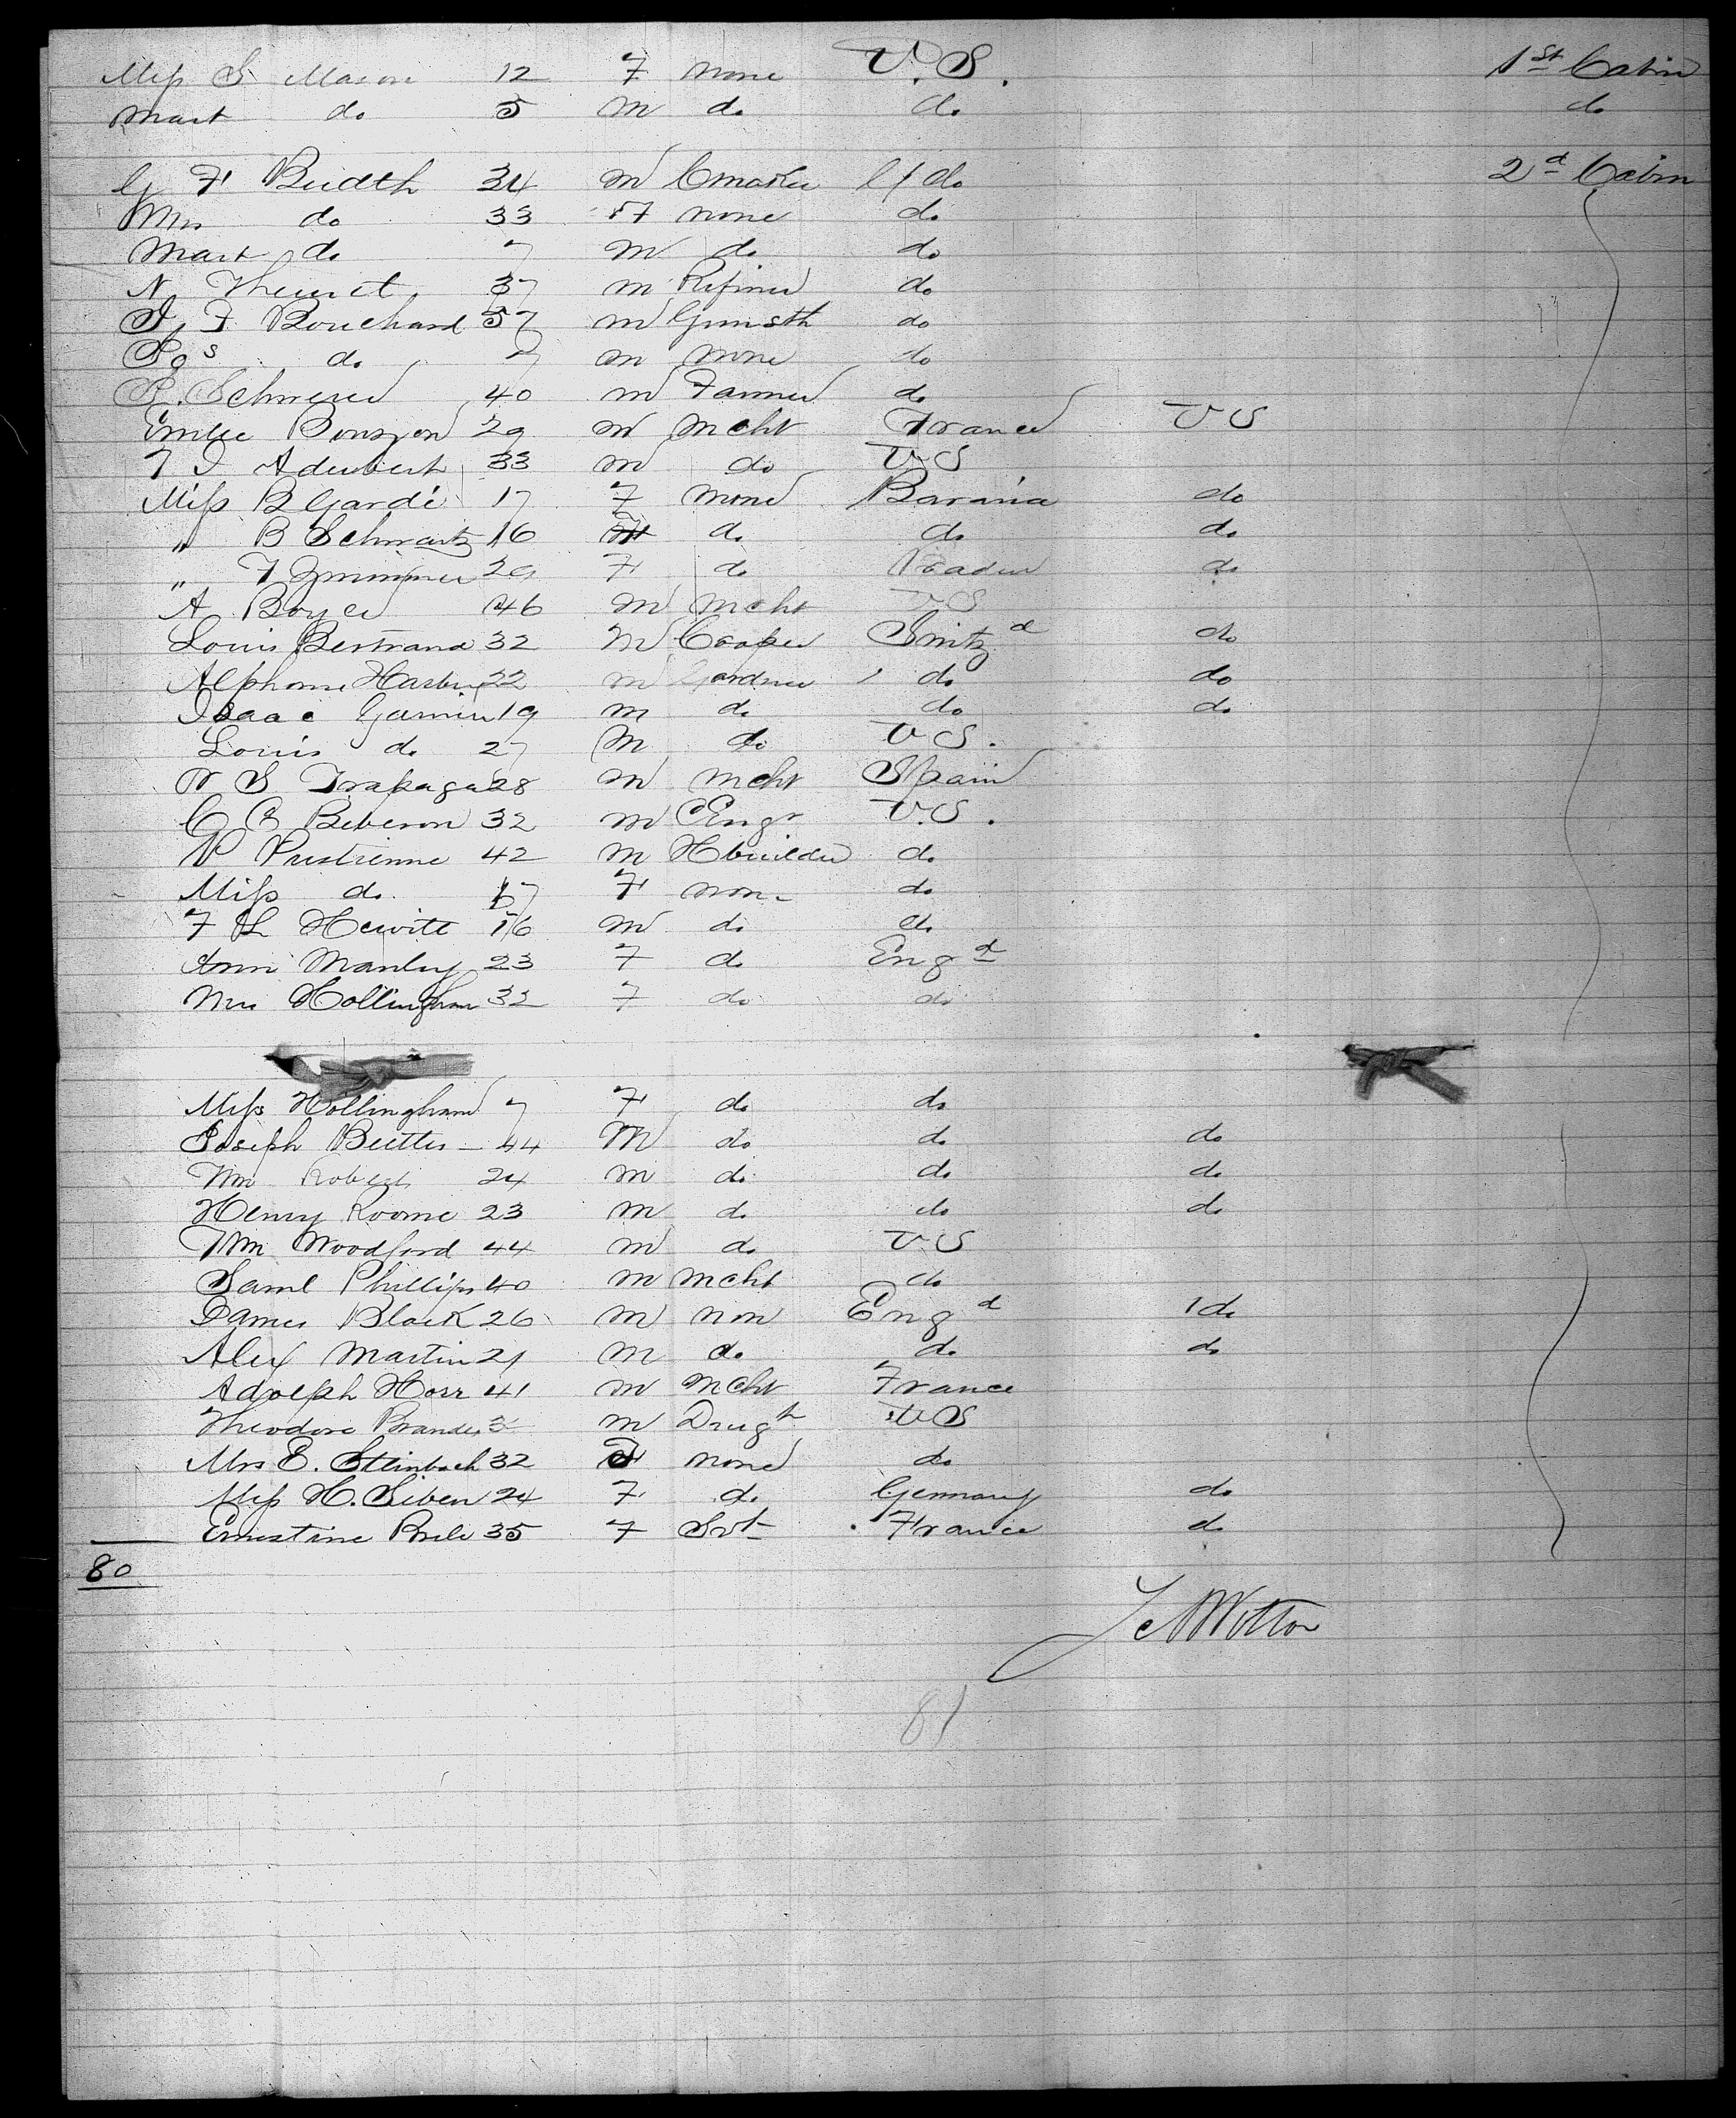 Miss S Mason 12 F none U.S. 1st Cabin
Mast do 5 m do do do
G F Buidth 34 m Cmaker do 2d Cabin
Mrs do 33 F none do
Mast do 7 m do do
N Theuret 37 m Refiner do
J F Bouchard 57 m Gunsth do
do 7 m none do
P. Schwerer 40 m Farmer do
Emilie Bonszon 29 m mcht France US
33 m do US
Miss B Gardé 17 F none Bavaria do
" B Schwartz 16 F do do do
" F 29 F do Baden do
A Boyce 46 m mcht US
Louis Bertrand 32 m Cooper Switzd do
Alphonse 22 m Gardner do do
Isaac 19 m do do do
Louis do 27 m do US.
N S Trapaga 28 m mcht Spain
C E Beberon 32 m CEngr U.S.
P Pristienne 42 m Hbuilder do
Miss do 17 F non do
F L Hewitt 16 m do do
Ann Manley 23 F do Engd
Mrs Hollingham 32 F do do
Miss Hollingham 7 F do do
Joseph Beetles 44 m do do do
Wm Robert 24 m do do do
Henry Roome 23 m do do do
Wm Woodford 44 m do US
Saml Phillips 40 m mcht do
James Black 26 m non Engd do
Alex Martin 21 m do do do
Adolph Horr 41 m mcht France
Theodore Brandes m Drugt US
Mrs E. Steinbach 32 F none do
Miss H. Siben 24 F do Germany do
Ernestine 35 F Svt France do
80
J A Wotton
81